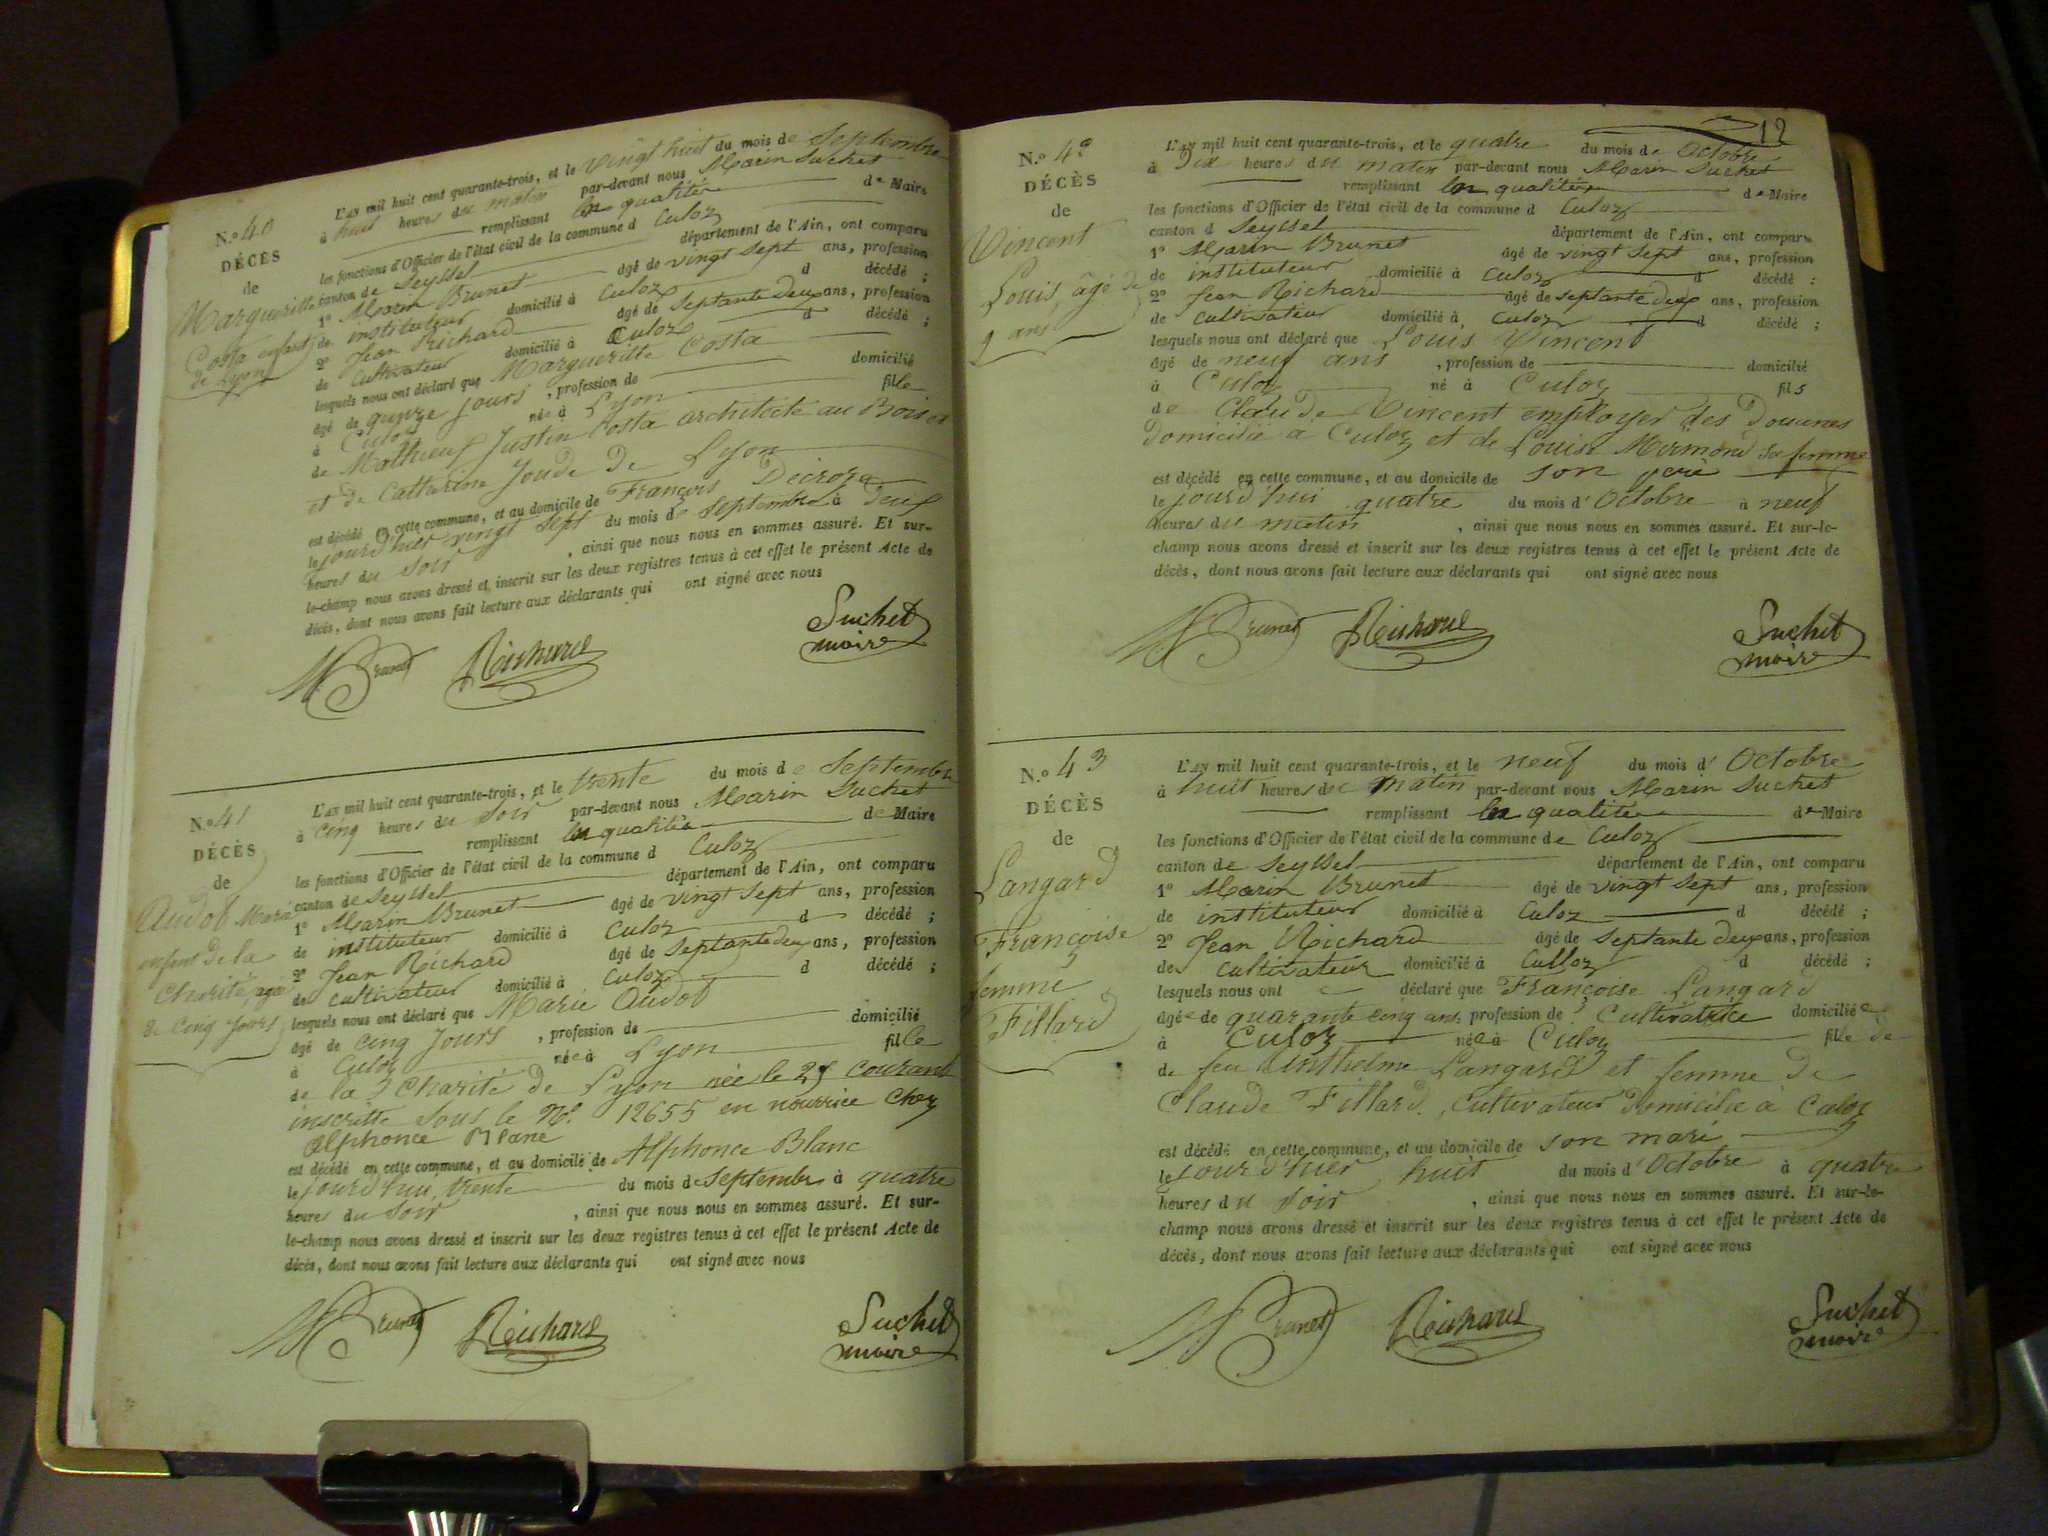 N.º 40
DÉCÈS
de
Margueritte
Costa enfant
de Lyon
L'AN mil huit cent quarante-trois, et le vingt huit du mois de Septembre
à huit heures du matin par-devant nous Marin Suchet
remplissant en qualité de Maire
les fonctions d'Officier de l'état civil de la commune d Culoz
canton de Seyssel département de l'Ain, ont comparu
1º Marin Brunet âgé de vingt sept ans, profession
de instituteur domicilié à Culoz d décédé ;
2º Jean Richard âgé de septante deux ans, profession
de cultivateur domicilié à Culoz d décédé ;
lesquels nous ont déclaré que Margueritte Costa
âgé de quinze jours, profession de domicilié
à Culoz née à Lyon fille
de Mathieu Justin Costa architecte au Bois
et de Catherine Joude de Lyon
est décédé en cette commune, et au domicile de François Décroza
le jourd'hier vingt sept du mois de Septembre à deux
heures du soir, ainsi que nous nous en sommes assuré. Et sur-
le-champ nous avons dressé et inscrit sur les deux registres tenus à cet effet le présent Acte de
décès, dont nous avons fait lecture aux déclarants qui ont signé avec nous
M Brunet Richard Suchet
maire
N.º 41
DÉCÈS
de
Audot Marie
enfant de la
Charité, agée
de Cinq Jours
L'AN mil huit cent quarante-trois, et le trente du mois de Septembre
à cinq heures du soir par-devant nous Marin Suchet
remplissant en qualité de Maire
les fonctions d'Officier de l'état civil de la commune d Culoz
canton de Seyssel département de l'Ain, ont comparu
1º Marin Brunet âgé de vingt sept ans, profession
de instituteur domicilié à Culoz d décédé ;
2º Jean Richard âgé de septante deux ans, profession
de cultivateur domicilié à Culoz d décédé ;
lesquels nous ont déclaré que Marie Audot
âgé de cinq Jours, profession de domicilié
à Culoz née à Lyon fille
de la Charité de Lyon née le 25 courant
inscritte sous le Nº. 12655 en nourrice chez
Alphonce Blanc
est décédé en cette commune, et au domicile de Alphonce Blanc
le jourd'hui, trente du mois de Septembre à quatre
heures du soir, ainsi que nous nous en sommes assuré. Et sur-
le-champ nous avons dressé et inscrit sur les deux registres tenus à cet effet le présent Acte de
décès, dont nous avons fait lecture aux déclarants qui ont signé avec nous
M Brunet Richard Suchet
maire
12
N.º 42
DÉCÈS
de
Vincent
Louis, âgé de
9 ans
L'AN mil huit cent quarante-trois, et le quatre du mois de Octobre
à Dix heures du matin par-devant nous Marin Suchet
remplissant en qualité de Maire
les fonctions d'Officier de l'état civil de la commune d Culoz
canton d Seyssel département de l'Ain, ont comparu
1º Marin Brunet âgé de vingt sept ans, profession
de instituteur domicilié à Culoz d décédé :
2º Jean Richard âgé de septante deux ans, profession
de cultivateur domicilié à Culoz d décédé ;
lesquels nous ont déclaré que Louis Vincent
âgé de neuf ans, profession de domicilié
à Culoz né à Culoz fils
de Claude Vincent employer des Douanes
domicilié à Culoz et de Louise Mermond sa femme
est décédé en cette commune, et au domicile de son père
le jourd'hui quatre du mois d'Octobre à neuf
heures du matin, ainsi que nous nous en sommes assuré. Et sur-le-
champ nous avons dressé et inscrit sur les deux registres tenus à cet effet le présent Acte de
décès, dont nous avons fait lecture aux déclarants qui ont signé avec nous
M Brunet Richard Suchet
maire
N.º 43
DÉCÈS
de
Langard
Françoise
femme
Fillard
L'AN mil huit cent quarante-trois, et le neuf du mois d'Octobre
à huit heures du matin par-devant nous Marin Suchet
remplissant en qualité de Maire
les fonctions d'Officier de l'état civil de la commune de Culoz
canton de Seyssel département de l'Ain, ont comparu
1º Marin Brunet âgé de vingt sept ans, profession
de instituteur domicilié à Culoz d décédé ;
2º Jean Richard âgé de septante deux ans, profession
de cultivateur domicilié à Culloz d décédé ;
lesquels nous ont déclaré que Françoise Langard
âgée de quarante cinq ans, profession de Cultivatrice domiciliée
à Culoz née à Culoz fille de
de feu Anthelme Langard et femme de
Claude Fillard, Cultivateur domicilié à Culoz
est décédé en cette commune, et au domicile de son mari
le jourd'hier huit du mois d'Octobre à quatre
heures du soir, ainsi que nous nous en sommes assuré. Et sur-le-
champ nous avons dressé et inscrit sur les deux registres tenus à cet effet le présent Acte de
décès, dont nous avons fait lecture aux déclarants qui ont signé avec nous
M Brunet Richard Suchet
maire